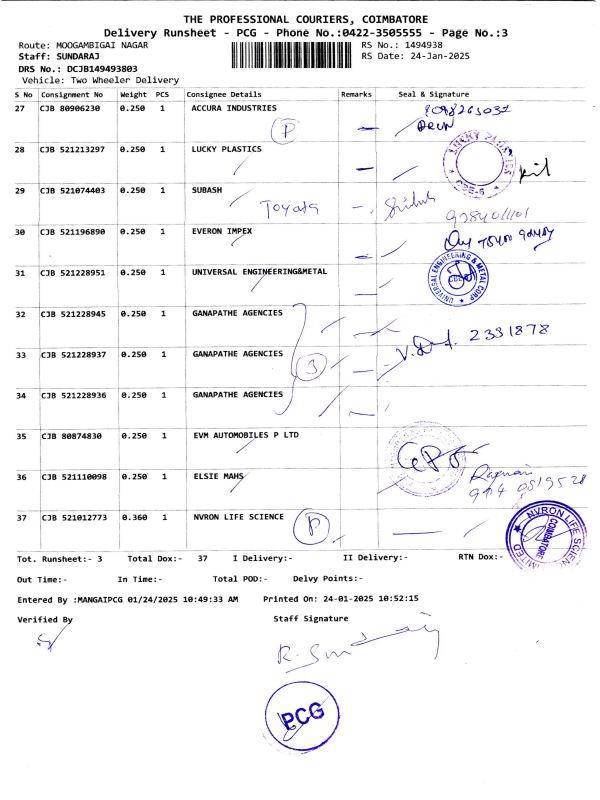 THE PROFESSIONAL COURIERS, COIMBATORE
Delivery Runsheet - PCG - Phone No.:0422-3505555 - Page No.:3
Route: MOOGAMBIGAI NAGAR RS No.: 1494938
Staff: SUNDARAJ RS Date: 24-Jan-2025
DRS No.: DCJB149493803
Vehicle: Two Wheeler Delivery
S No Consignment No Weight PCS Consignee Details Remarks Seal & Signature
27 CJB 80906230 0.250 1 ACCURA INDUSTRIES
P
28 CJB 521213297 0.250 1 LUCKY PLASTICS
29 CJB 521074403 0.250 1 SUBASH
Toyata
30 CJB 521196890 0.250 1 EVERON IMPEX
31 CJB 521228951 0.250 1 UNIVERSAL ENGINEERING&METAL
UNIVERSAL ENGINEERING & METAL CORP
32 CJB 521228945 0.250 1 GANAPATHE AGENCIES
2331878
33 CJB 521228937 0.250 1 GANAPATHE AGENCIES
3
34 CJB 521228936 0.250 1 GANAPATHE AGENCIES
35 CJB 80874830 0.250 1 EVM AUTOMOBILES P LTD
36 CJB 521110098 0.250 1 ELSIE MAHS
37 CJB 521012773 0.360 1 NVRON LIFE SCIENCE
P
NVRON LIFE SCIEN
COIMBATORE
Tot. Runsheet:- 3 Total Dox:- 37 I Delivery:- II Delivery:- RTN Dox:-
Out Time:- In Time:- Total POD:- Delvy Points:-
Entered By :MANGAIPCG 01/24/2025 10:49:33 AM Printed On: 24-01-2025 10:52:15
Verified By Staff Signature
PCG